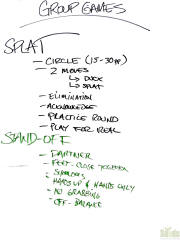 GROUP GAMES
SPLAT
- CIRCLE (15-30pp.)
- 2 MOVES
↳ DUCK
↳ SPLAT
- ELIMINATION
- ACKNOWLEDGE
- PRACTICE ROUND
- PLAY FOR REAL
STAND-OFF
- PARTNER
- FEET CLOSE TOGETHER
- HANDS UP & HANDS ONLY
- NO GRABBING
- OFF-BALANCE